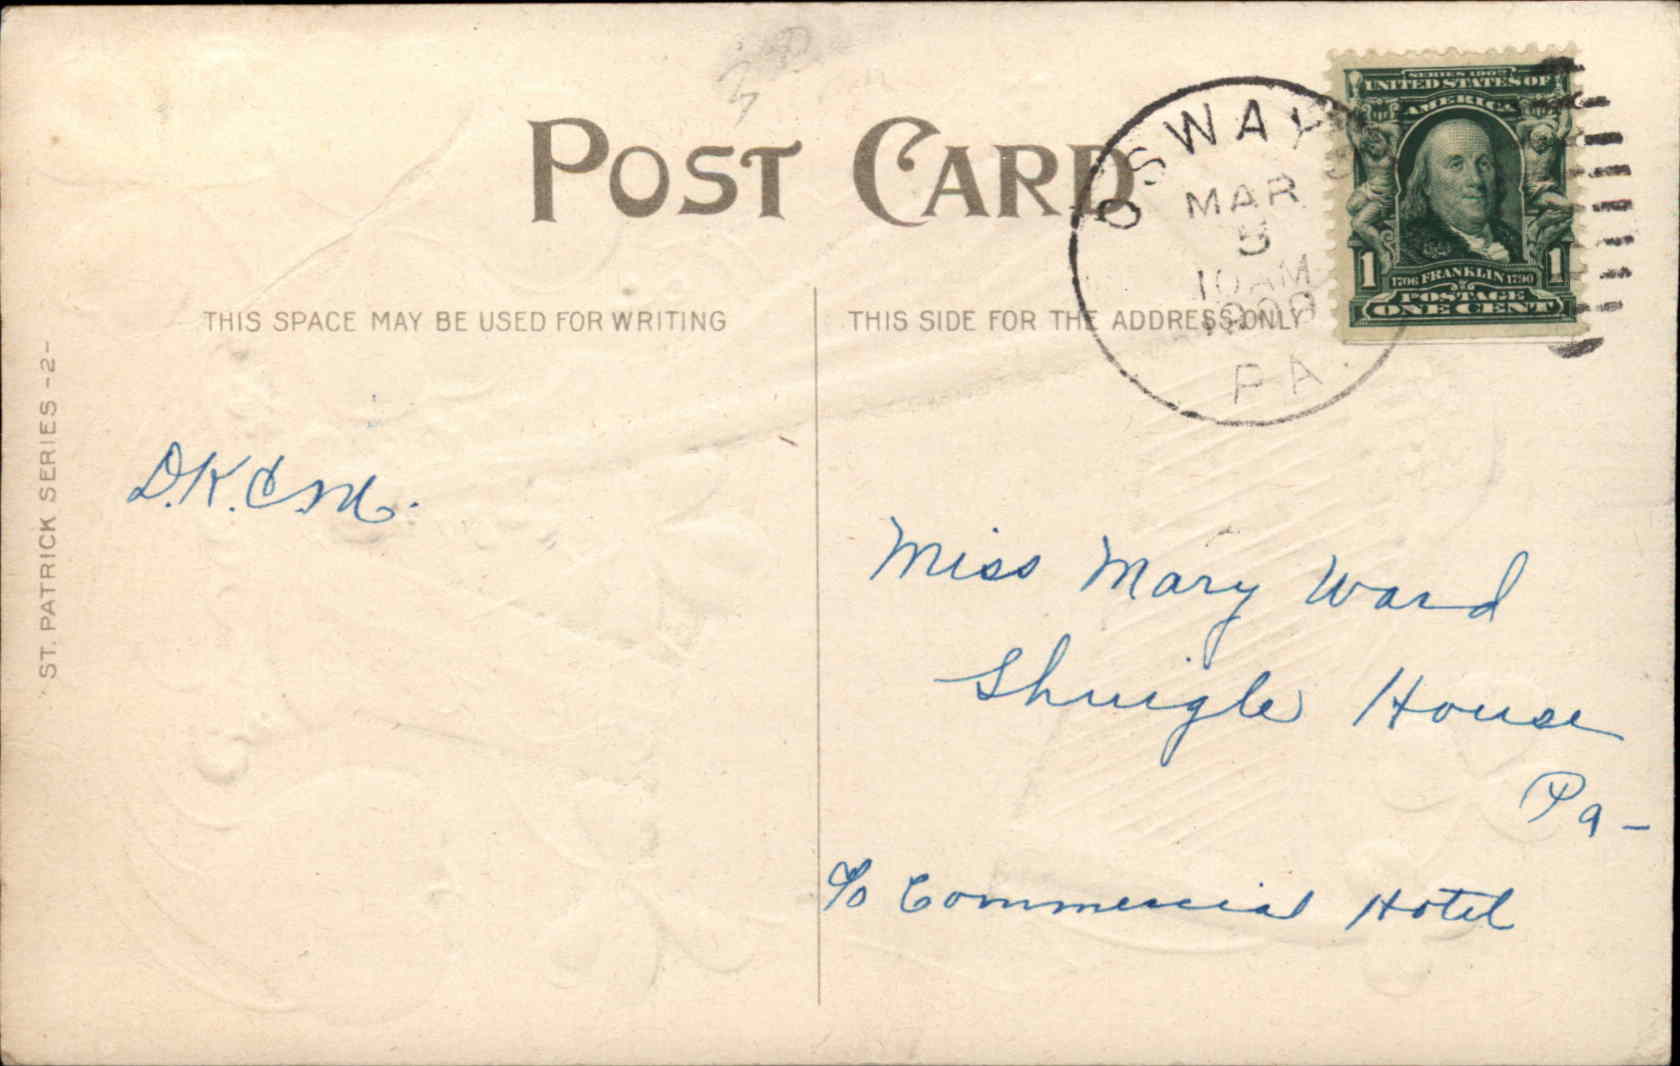 POST CARD
OSWAYO
MAR
5
10 AM
1909
PA.
SERIES 1902
UNITED STATES OF
AMERICA
1 1706 FRANKLIN 1790 1
POSTAGE
ONE CENT
THIS SPACE MAY BE USED FOR WRITING
THIS SIDE FOR THE ADDRESS ONLY
ST. PATRICK SERIES -2-
D.K.C.M.
Miss Mary Ward
Shingle House
Pa-
c/o Commercial Hotel